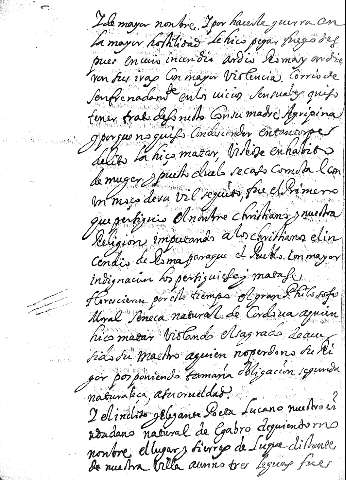 I de mayor nombre, I por hacerle guerra con
la mayor hostilidad le hiço pegar fuego des
pues en cuio incendio ardio Roma y ardie
ran sus iras con mayor violencia. Corrio de
senfrenado en los vicios sensuales quiso
tener trato desonesto con su madre Agripina
y porque no quiso condescender en tan torpe
delito la hiço matar, vistiose en habito
de muger, y puesto velo se caso con
un moço de su vil sequito, fue el Primero
que persiguio el nombre christiano, y nuestra
Religion, imputando a los christianos el in
cendio de Roma para que el Pueblo con mayor
indignacion los persiguiese y matase
florecieron por este tiempo el gran Philosofo
Moral Seneca natural de Cordova a quien
hiço matar violando el sagrado de que
sido su Maestro a quien no perdono su Ri
gor posponiendo tamaña obligación segunda
naturaleça, a su crueldad.
I el inclito y elegante Poeta Lucano nuestro ci
udadano natural de Egabro de quien tomo
nombre el lugar y tierras de Luque distante
de nuestra Villa aun no tres leguas fues